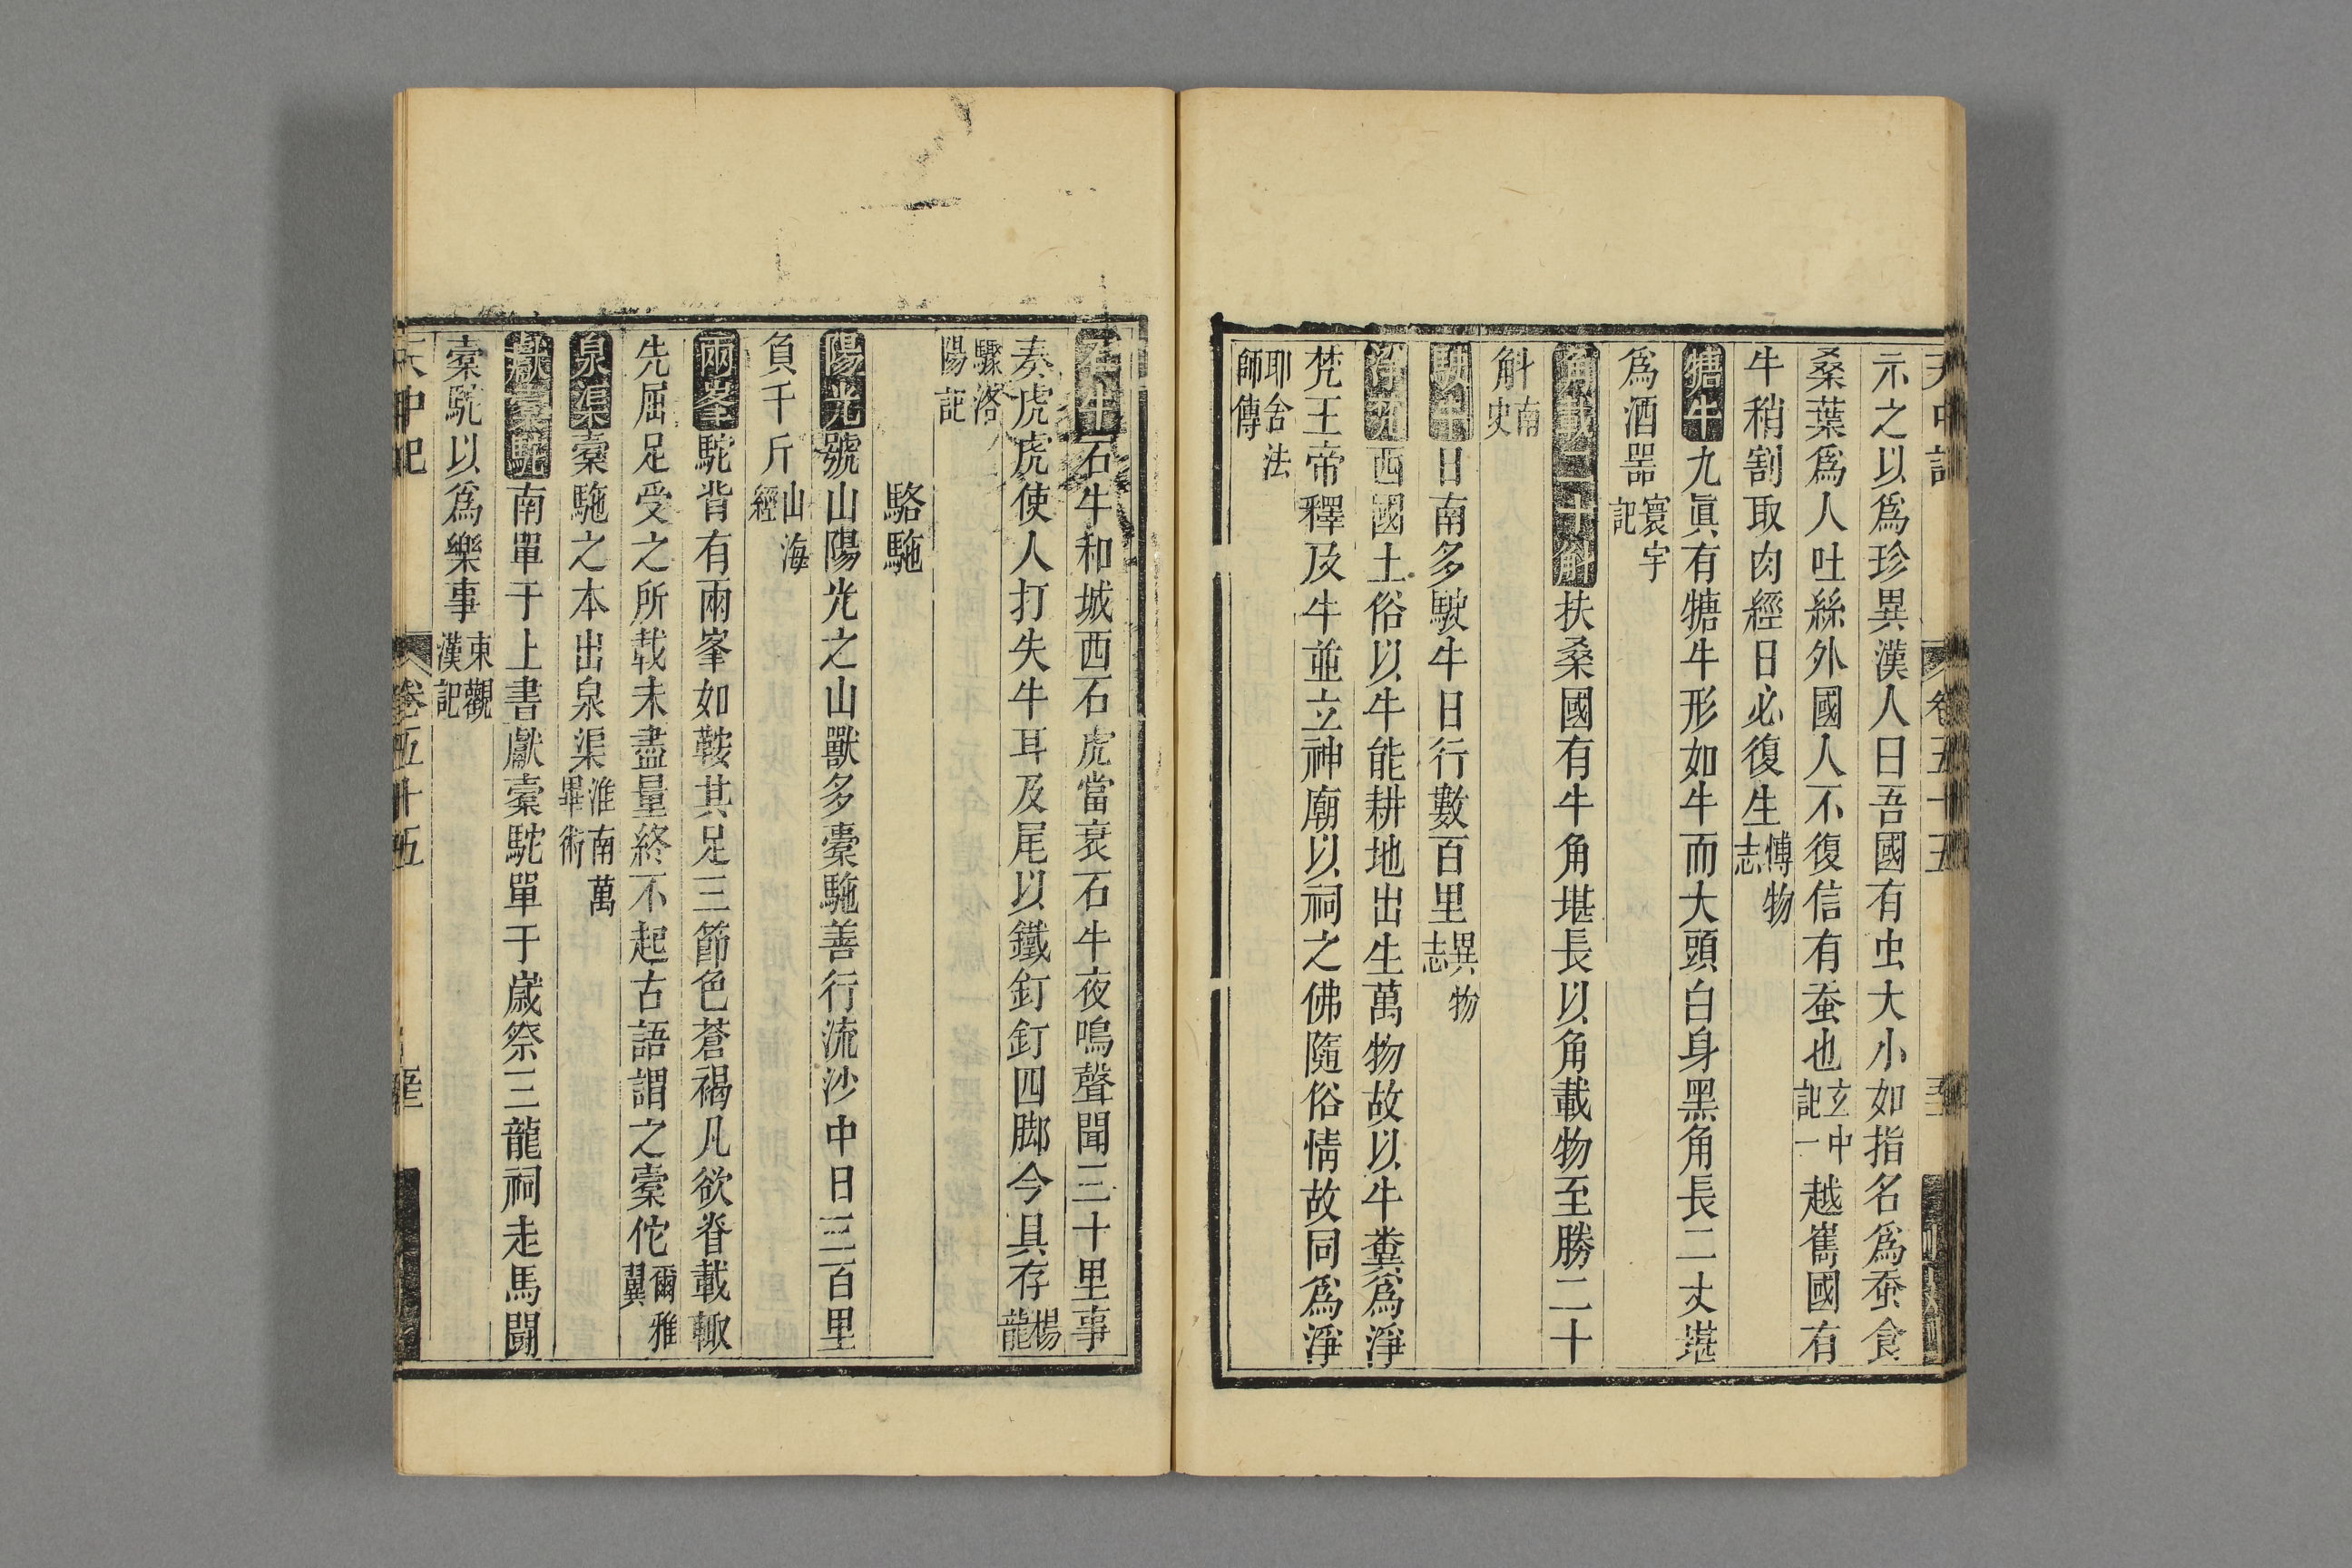 示之以爲珍異漢人曰吾國有虫大小如指名爲蚕食
桑葉爲人吐絲外國人不復信有蚕也玄中記一越嶲國有
牛稍割取肉經日必復生博物志
㹔牛九眞有㹔牛形如牛而大頭白身黑角長二丈堪
爲酒器寰宇記
角載二十斛扶桑國有牛角堪長以角載物至勝二十
斛南史
駛牛日南多駛牛日行數百里異物志
淨兆西國土俗以牛能耕地出生萬物故以牛糞爲淨
梵王帝釋及牛並立神廟以祠之佛隨俗情故同爲淨
耶舍法師傳
石牛石牛和城西石虎當衰石牛夜鳴聲聞三十里事
奏虎虎使人打失牛耳及尾以鐵釘釘四脚今具存楊龍
驤洛陽記
駱駞
陽光號山陽光之山獸多橐駞善行流沙中日三百里
負千斤山海經
兩峯駝背有兩峯如鞍其足三節色蒼褐凡欲眷載輙
先屈足受之所載未盡量終不起古語謂之橐佗爾雅翼
泉渠橐駞之本出泉渠淮南萬畢術
獻橐駝南單于上書獻橐駝單于歲祭三龍祠走馬鬪
橐駝以爲樂事東觀漢記
天中記 卷五十五